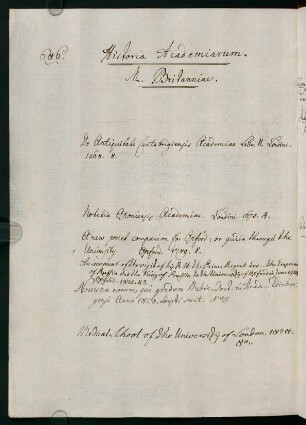 686.
Historia Academiarum.
M. Britanniae.
De Antiquitate Cantabrigiensis Academiae Libri II. Londini.
1568. 8.
Notitia Oxoniensis Academiae. Londini. 1675. 4.
A new pocket companion for Oxford: or guide through the
University. Oxford. 1789. 8.
An account of the visit of his R. H. the Prince Regent and the Emperor
of Russia and the King of Prussia to the University of Oxford in June 1814
Oxford. 1815. 42.
Nomina eorum, qui gradum Medic. Doct. in Acad. Edinbur
gensi Anno 1826. adepti sunt.
Medical School of the University of London. 1828.
8o.